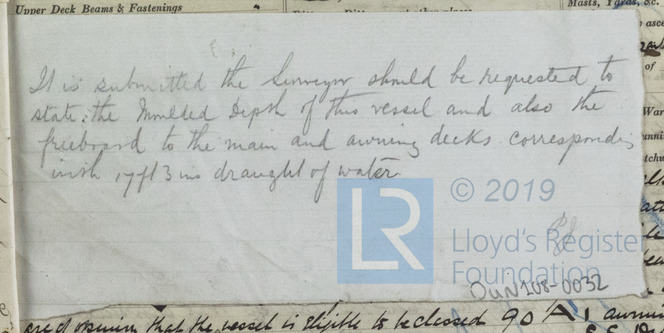 Upper Deck Beams & Fastenings
Masts, Yards, &c.
It is submitted the Surveyor should be requested to
state the Moulded Depth of this vessel and also the
freeboard to the main and awning decks corresponding
with 17ft 3ins draught of water
LR
© 2019
Lloyd's Register
Foundation
DUN108-0032
are of opinion that the vessel is Eligible to be classed 90 A1